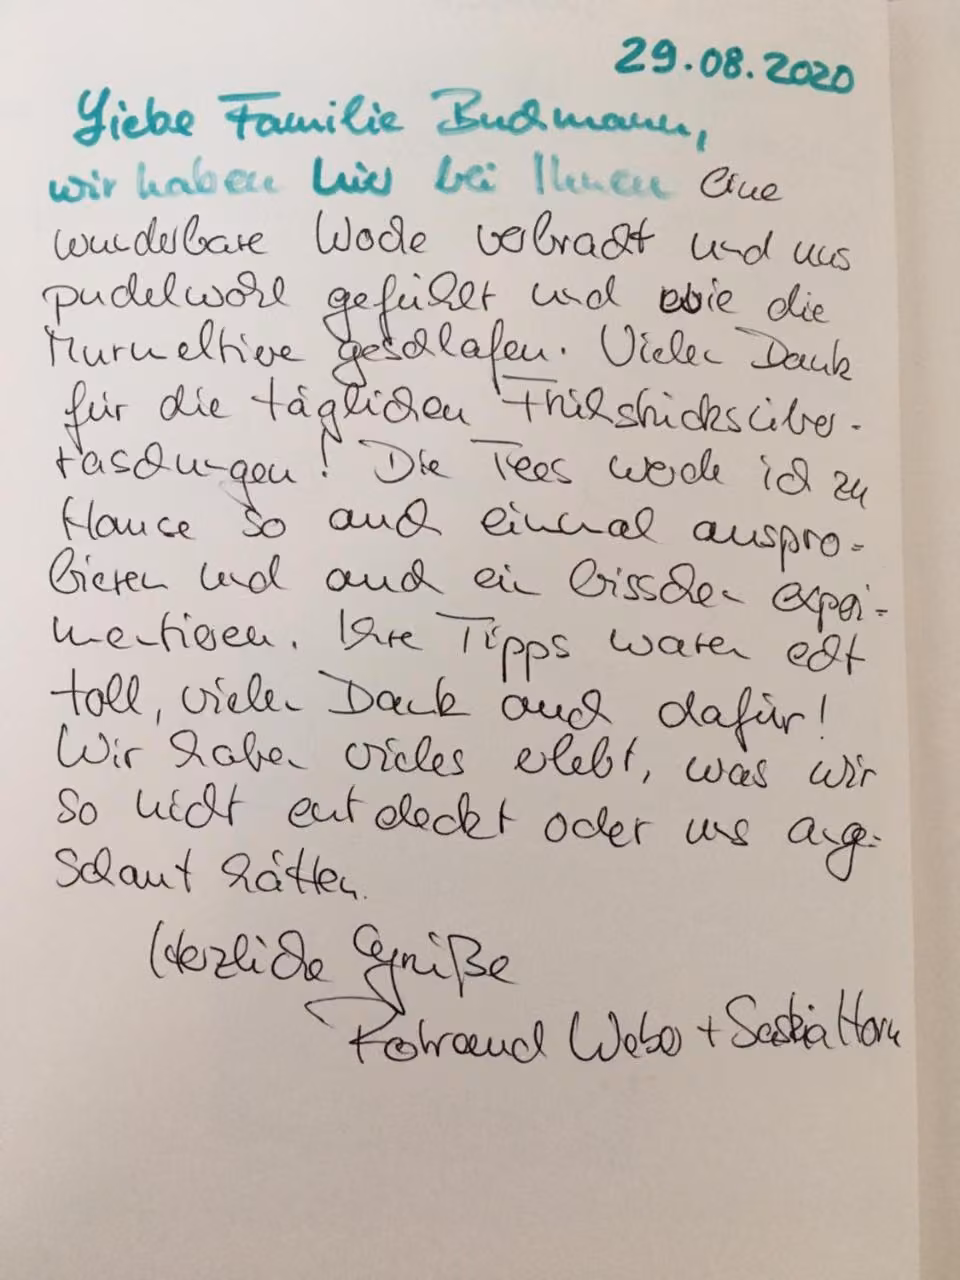 29.08.2020
Liebe Familie Buchmann,
wir haben hier bei Ihnen eine
wunderbare Woche verbracht und uns
pudelwohl gefühlt und wie die
Murmeltiere geschlafen. Vielen Dank
für die täglichen Frühstücksüber-
raschungen! Die Tees werde ich zu
Hause so auch einmal auspro-
bieren und auch ein bisschen experi-
mentieren. Ihre Tipps waren echt
toll, vielen Dank auch dafür!
Wir haben vieles erlebt, was wir
so nicht entdeckt oder uns ange-
schaut hätten.
Herzliche Grüße
Weber + Saskia Horn